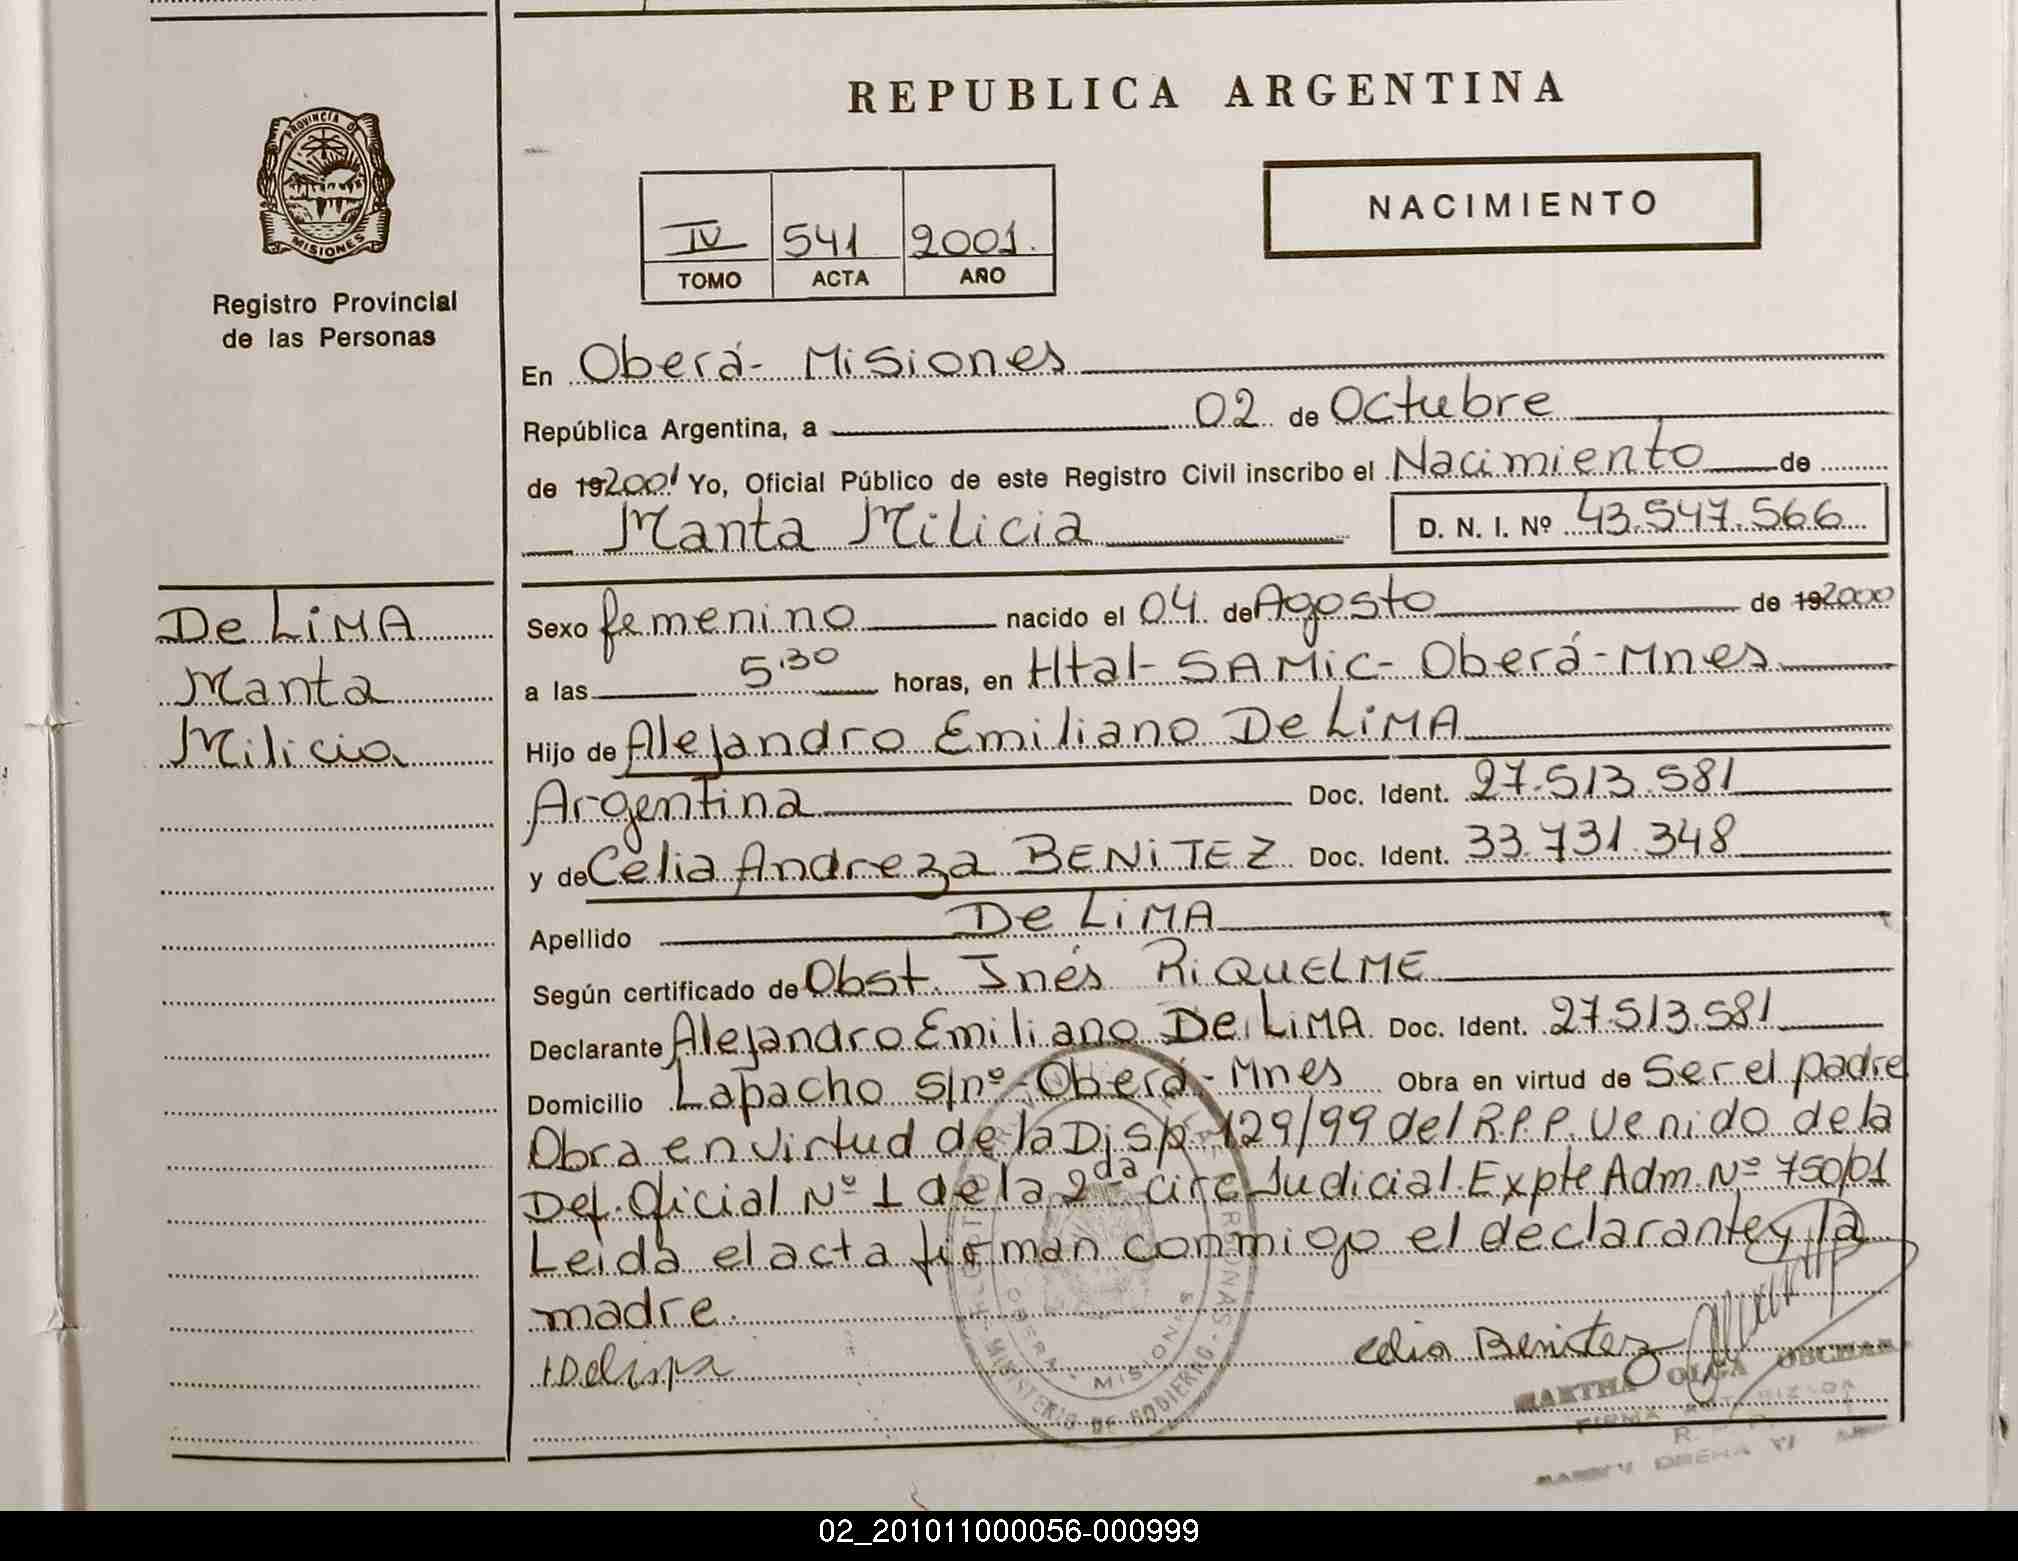 REPUBLICA ARGENTINA
PROVINCIA DE
MISIONES
Registro Provincial
de las Personas
IV 541 2001.
TOMO ACTA AÑO
NACIMIENTO
En Oberá- Misiones
República Argentina, a 02 de Octubre
de 192001 Yo, Oficial Público de este Registro Civil inscribo el Nacimiento de
Manta Milicia D. N. I. Nº 43.547.566
De LiMA
Manta
Milicia
Sexo femenino nacido el 04 de Agosto de 192000
a las 5:30 horas, en Htal- SAMic- Oberá-Mnes
Hijo de Alejandro Emiliano De LiMA
Argentina Doc. Ident. 27.513.581
y de Celia Andreza BENiTEZ Doc. Ident. 33.731.348
Apellido De LiMA
Según certificado de Obst. Inés RiQUELME
Declarante Alejandro Emiliano De LiMA Doc. Ident. 27.513.581
Domicilio Lapacho s/nº-Oberá-Mnes Obra en virtud de Ser el padre
Obra en virtud de la Disp. 129/99 del R.P.P. Venido de la
Def. Oficial Nº 1 de la 2da Circ Judicial. Expte Adm. Nº 750/01
Leida el acta firman conmigo el declarante y la
madre.
Celia Benitez
MINISTERIO DE GOBIERNO
OBERA MISIONES
MARTHA OLGA
FIRMA AUTORIZADA
02_201011000056-000999